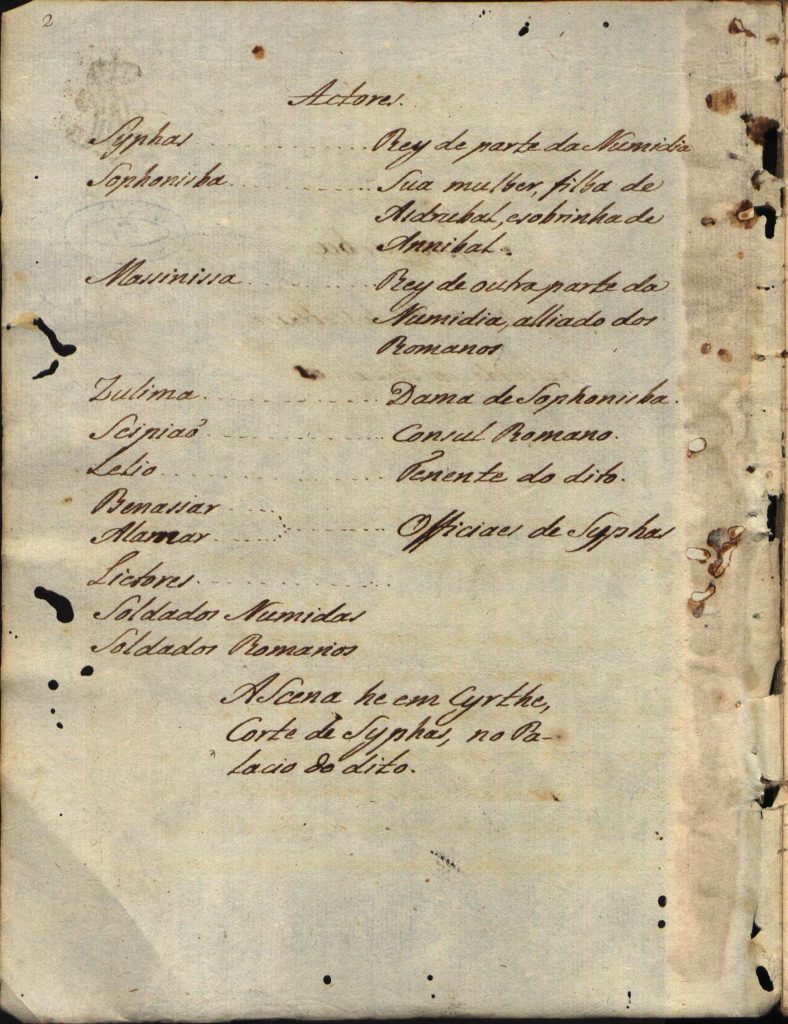 2
Actores.
Syphas ............ Rey de parte da Numidia
Sophonisba ............ Sua mulher, filha de
Asdrubal, e sobrinha de
Annibal.
Massinissa ............ Rey de outra parte da
Numidia, alliado dos
Romanos
Zulima ............ Dama de Sophonisba.
Scipiaõ ............ Consul Romano.
Lelio ............ Tenente do dito.
Benassar ......
Alamar ...... ...... Officiaes de Syphas
Lictores ............
Soldados Numidas
Soldados Romanos
A Scena he em Cyrthe,
Corte de Syphas, no Pa-
lacio do dito.